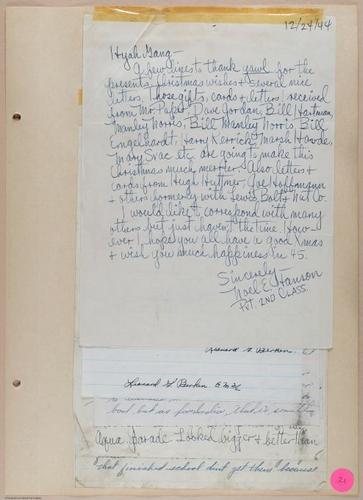 12/24/44
Hiyah Gang -
A few lines to thank yawl for the
presents, christmas wishes & several nice
letters. Those gifts, cards & letters I received
from Mr. Dave Jordan, Bill Hartman,
Manley Norris, Bill Manley Norris, Bill
Engelhardt, Harry Kerrick, Marsh
Mary Svac etc. are going to make this
Christmas much merrier. Also letters &
cards from Hugh Huffner, Joe Hoffmann
& others formerly with Lewis Bolt & Nut Co.
I would like to correspond with many
others but just haven't the time. How-
ever I hope you all have a good Xmas
& wish you much happiness in 45.
Sincerely -
Noel E. Hanson
PVT. 2ND CLASS.
Leonard W.
Leonard W.
but as for
Aqua parade looked bigger & better than
that finished school but get them because